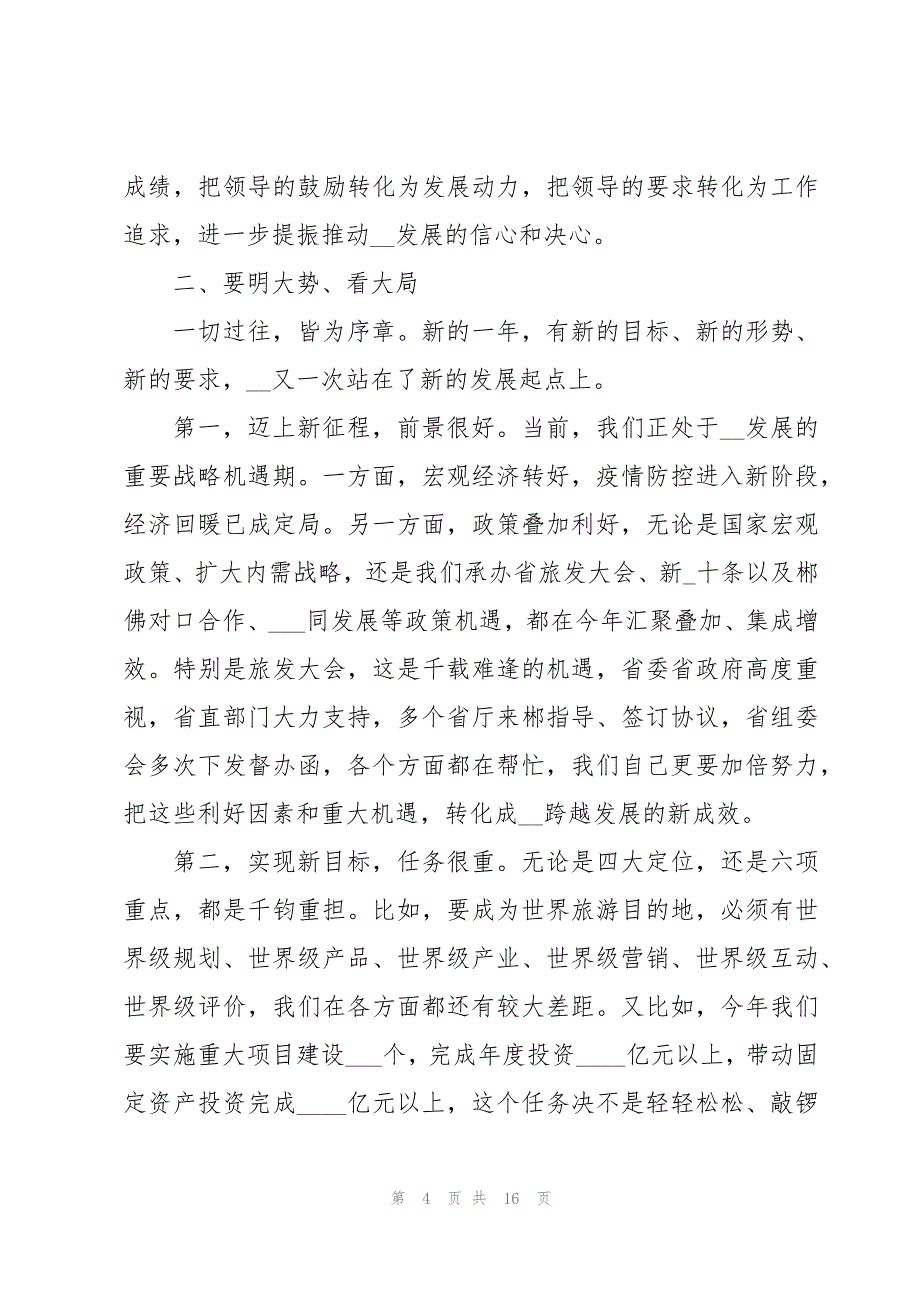 成绩，把领导的鼓励转化为发展动力，把领导的要求转化为工作
追求，进一步提振推动__发展的信心和决心。
二、要明大势、看大局
一切过往，皆为序章。新的一年，有新的目标、新的形势、
新的要求，__又一次站在了新的发展起点上。
第一，迈上新征程，前景很好。当前，我们正处于__发展的
重要战略机遇期。一方面，宏观经济转好，疫情防控进入新阶段，
经济回暖已成定局。另一方面，政策叠加利好，无论是国家宏观
政策、扩大内需战略，还是我们承办省旅发大会、新_十条以及郴
佛对口合作、___同发展等政策机遇，都在今年汇聚叠加、集成增
效。特别是旅发大会，这是千载难逢的机遇，省委省政府高度重
视，省直部门大力支持，多个省厅来郴指导、签订协议，省组委
会多次下发督办函，各个方面都在帮忙，我们自己更要加倍努力，
把这些利好因素和重大机遇，转化成__跨越发展的新成效。
第二，实现新目标，任务很重。无论是四大定位，还是六项
重点，都是千钧重担。比如，要成为世界旅游目的地，必须有世
界级规划、世界级产品、世界级产业、世界级营销、世界级互动、
世界级评价，我们在各方面都还有较大差距。又比如，今年我们
要实施重大项目建设___个，完成年度投资____亿元以上，带动固
定资产投资完成____亿元以上，这个任务决不是轻轻松松、敲锣
第 4 页 共 16 页